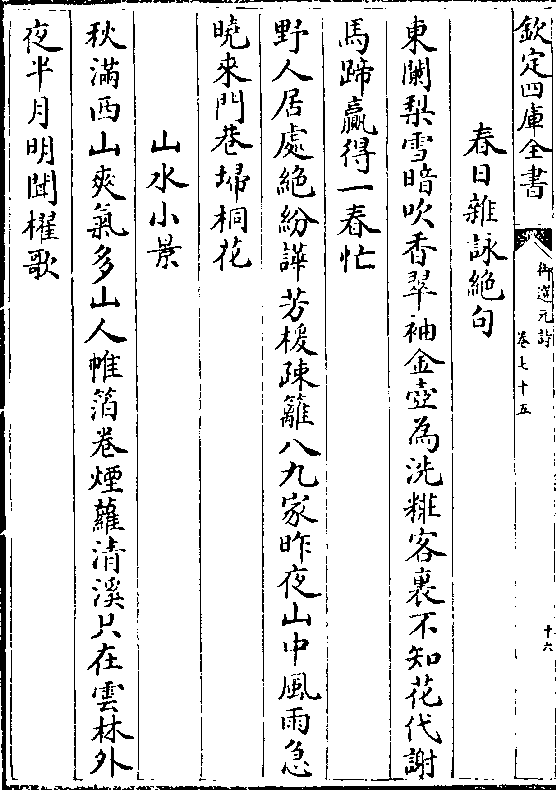 欽定四庫全書
御選元詩
卷七十五
十六
春日雜詠絶句
東闌梨雪暗吹香翠袖金壺為洗粧客裏不知花代謝
馬蹄贏得一春忙
野人居處絶紛譁芳楥疎籬八九家昨夜山中風雨急
曉来門巷埽桐花
山水小景
秋滿西山爽氣多山人帷箔卷煙蘿清溪只在雲林外
夜半月明聞櫂歌